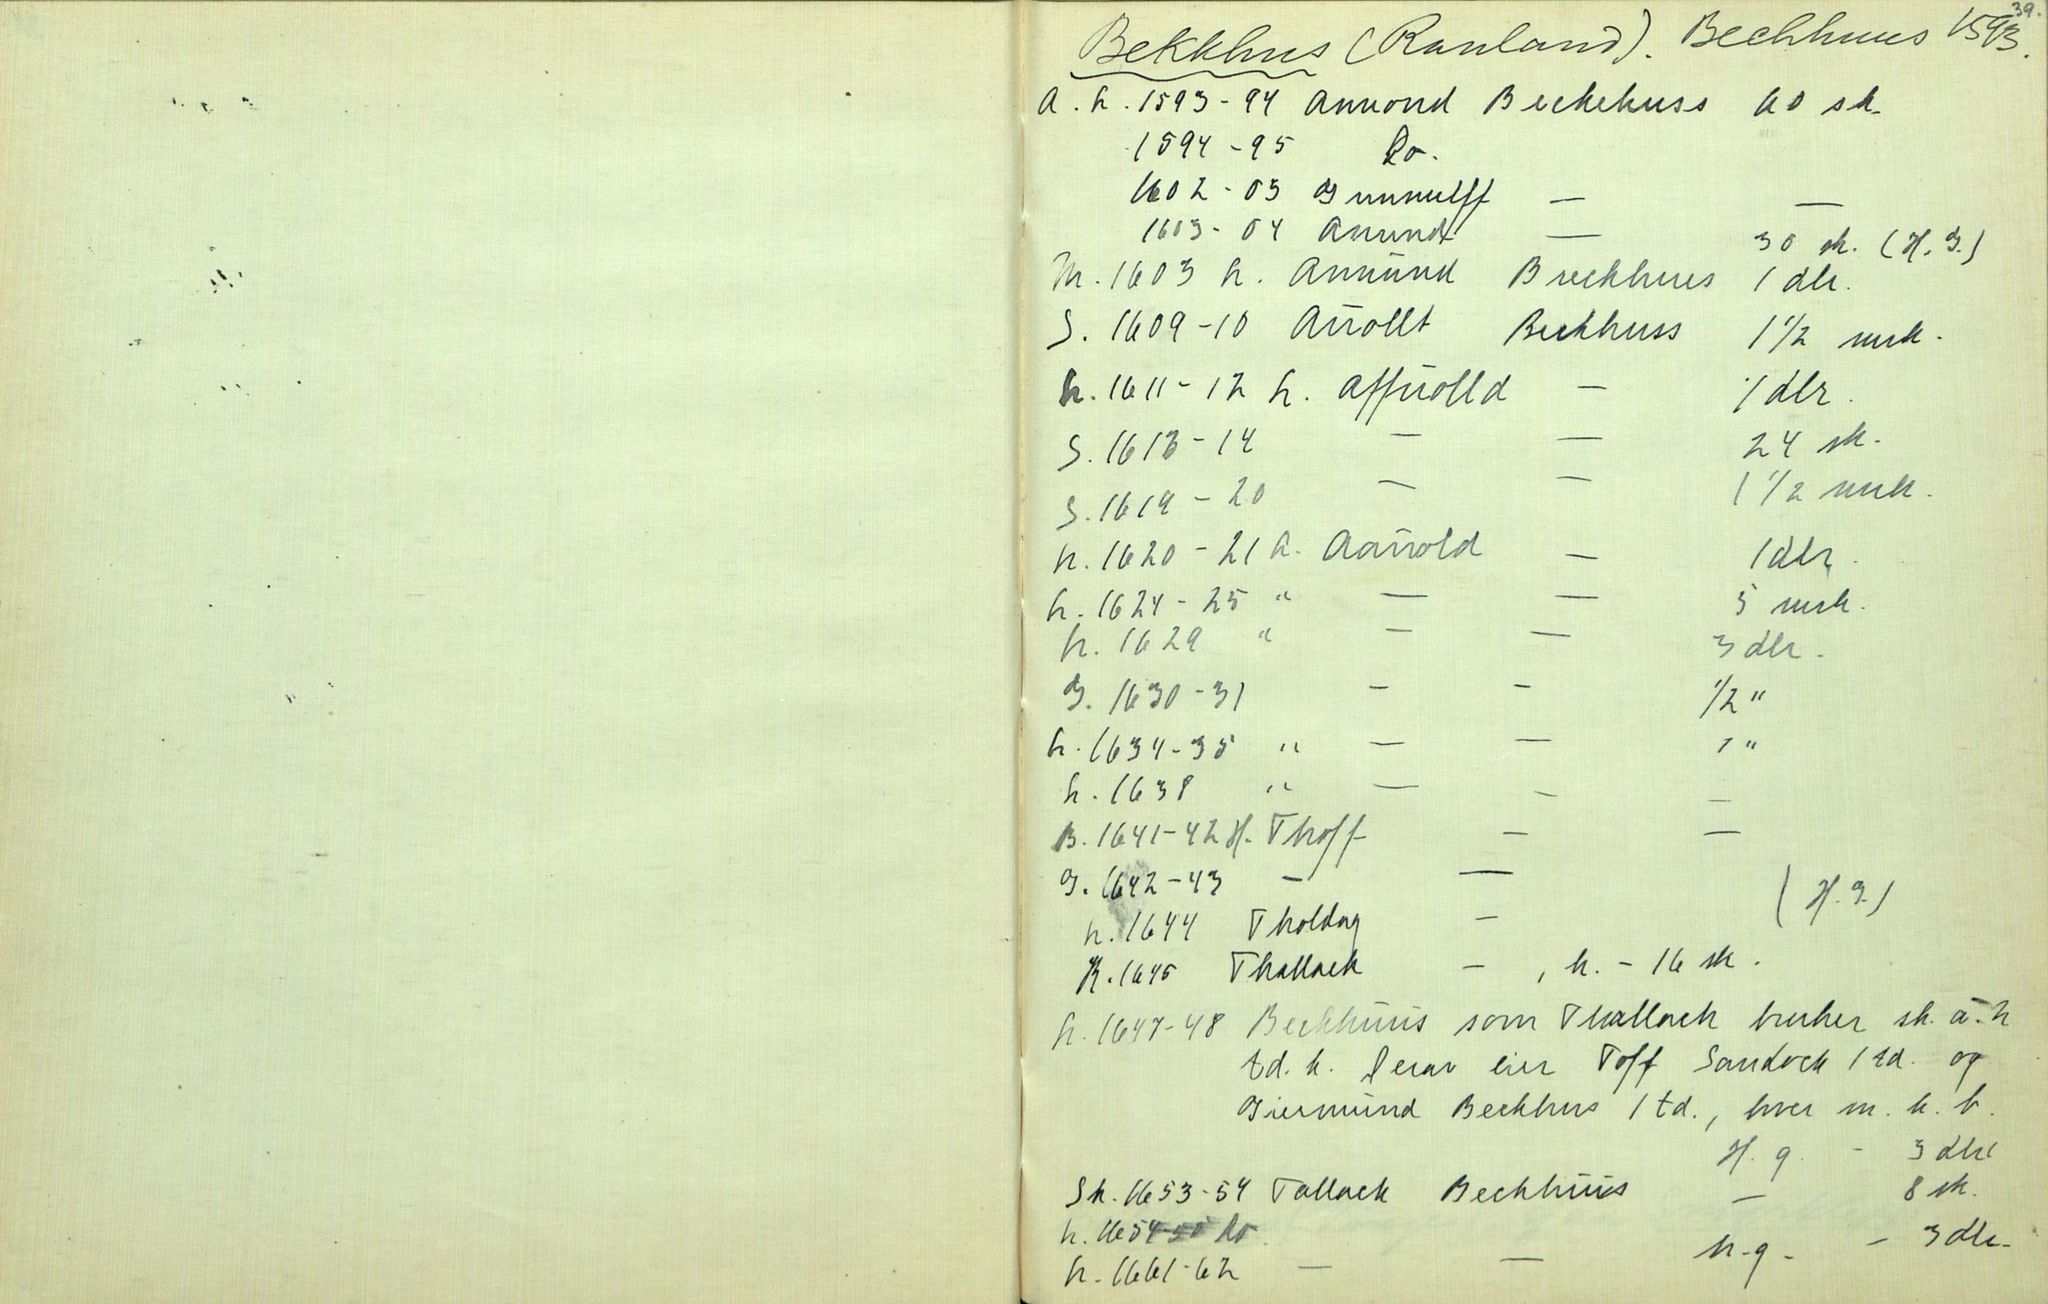 39.
Bekkhus (Rauland). Bechhuus 1593.
A. h. 1593-94 Amond Beckehuss 60 sk.
1594-95 Do.
1602-03 Gunnulff — —
1603-04 Amund — 30 sk. (H. G.)
M. 1603 h. Amŭnd Beckhues 1 dlr.
S. 1609-10 Aŭollt Beckhuss 1 1/2 mrk.
h. 1611-12 h. Affŭolld — 1 dlr.
S. 1613-14 — — 24 sk.
S. 1619-20 — — 1 1/2 mrk.
h. 1620-21 h. Aaŭold — 1 dlr.
h. 1624-25 " — — 5 mrk.
h. 1629 " — — 3 dlr.
G. 1630-31 — — 1/2 "
h. 1634-35 " — — 1 "
h. 1638 " — — —
B. 1641-42 H. Thoff — —
G. 1642-43 — —
h. 1644 Tholdag — (H. G.)
K. 1645 Thallack — , h. - 16 sk.
h. 1647-48 Beckhŭŭs som Thallack bruker sk. a. 2
td. k. Derav eier Toff Sandock 1 td. og
Giermŭnd Beckhus 1 td., hver m. k. b.
H. g. - 3 dlr
Sk. 1653-54 Tallack Beckhŭŭs — 8 sk.
h. 1654-55 Do
h. 1661-62 — — h. g. - 3 dlr.